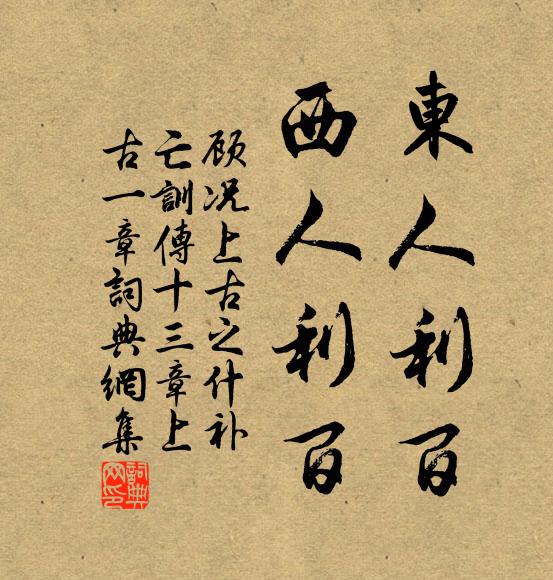 東人利百
西人利百
顾况上古之什补
亡訓傳十三章上
古一章詞典網集
詞典
网印